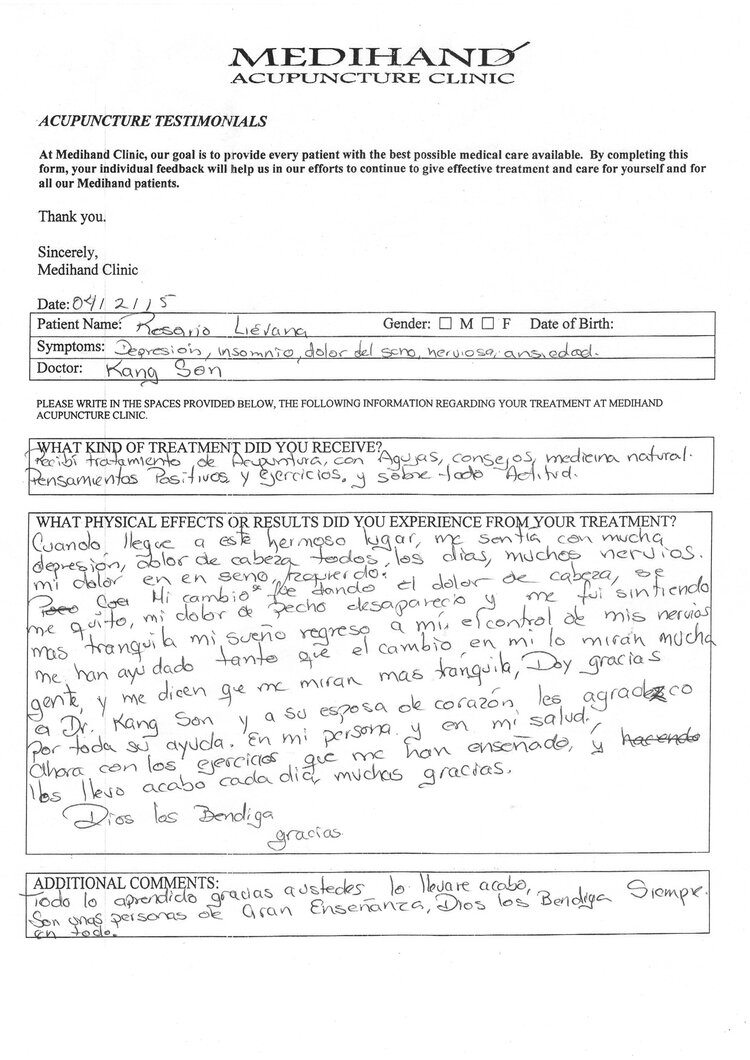 MEDIHAND
ACUPUNCTURE CLINIC
ACUPUNCTURE TESTIMONIALS
At Medihand Clinic, our goal is to provide every patient with the best possible medical care available. By completing this
form, your individual feedback will help us in our efforts to continue to give effective treatment and care for yourself and for
all our Medihand patients.
Thank you.
Sincerely,
Medihand Clinic
Date: 04/2/15
Patient Name: Rosario Liévana Gender: ☐ M ☐ F Date of Birth:
Symptoms: Depresión, insomnio, dolor del seno, nerviosa, ansiedad.
Doctor: Kang Son
PLEASE WRITE IN THE SPACES PROVIDED BELOW, THE FOLLOWING INFORMATION REGARDING YOUR TREATMENT AT MEDIHAND
ACUPUNCTURE CLINIC.
WHAT KIND OF TREATMENT DID YOU RECEIVE?
recibí tratamiento de Acupuntura, con Agujas, consejos, medicina natural.
Pensamientos Positivos y ejercicios. y sobre todo Actitud.
WHAT PHYSICAL EFFECTS OR RESULTS DID YOU EXPERIENCE FROM YOUR TREATMENT?
Cuando llegue a este hermoso lugar, me sentia con mucha
depresión, dolor de cabeza todos, los dias, muchos nervios.
mi dolor en en seno, Izquierdo.
Mi cambio fue dando el dolor de cabeza, se
me quito, mi dolor de pecho desaparecio y me fui sintiendo
mas tranquila mi sueño regreso a mi, el control de mis nervios
me han ayudado tanto que el cambio, en mi lo miran mucha
gente, y me dicen que me miran mas tranquila, Doy gracias
a Dr. Kang Son y a su esposa de corazón, les agradezco
Por toda su ayuda. En mi persona y en mi salud,
Ahora con los ejercicios que me han enseñado, y haciendo
los llevo acabo cada dia, muchas gracias.
Dios los Bendiga
gracias
ADDITIONAL COMMENTS:
Todo lo aprendido gracias austedes lo llevare acabo,
Son unas personas de Gran Enseñanza, Dios los Bendiga Siempre.
en todo.